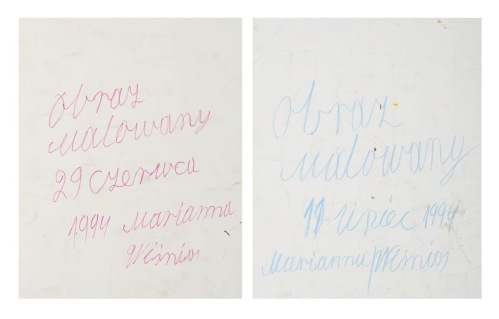 Obraz
Malowany
29 Czerwca
1994 Marianna
Wiśnios
Obraz
Malowany
11 Lipiec 1994
Marianna Wiśnios